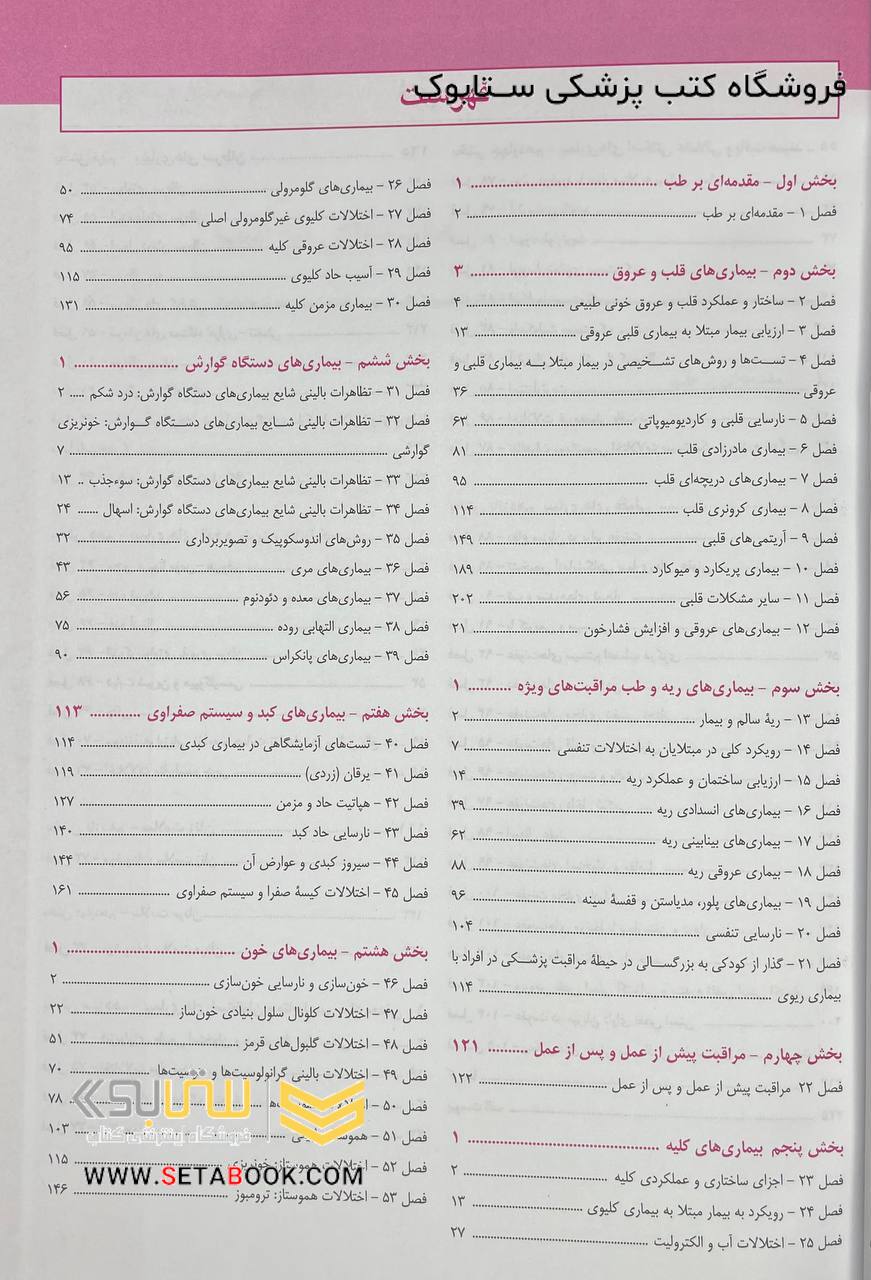 فروشگاه کتب پزشکی ستابوک
فهرست
بخش اول - مقدمه‌ای بر طب ۱
فصل ۱ - مقدمه‌ای بر طب ۲
بخش دوم - بیماری‌های قلب و عروق ۳
فصل ۲ - ساختار و عملکرد قلب و عروق خونی طبیعی ۴
فصل ۳ - ارزیابی بیمار مبتلا به بیماری قلبی عروقی ۱۳
فصل ۴ - تست‌ها و روش‌های تشخیصی در بیمار مبتلا به بیماری قلبی و
عروقی ۳۶
فصل ۵ - نارسایی قلبی و کاردیومیوپاتی ۶۳
فصل ۶ - بیماری مادرزادی قلب ۸۱
فصل ۷ - بیماری‌های دریچه‌ای قلب ۹۵
فصل ۸ - بیماری کرونری قلب ۱۱۴
فصل ۹ - آریتمی‌های قلبی ۱۴۹
فصل ۱۰ - بیماری پریکارد و میوکارد ۱۸۹
فصل ۱۱ - سایر مشکلات قلبی ۲۰۲
فصل ۱۲ - بیماری‌های عروقی و افزایش فشارخون ۲۱
بخش سوم - بیماری‌های ریه و طب مراقبت‌های ویژه ۱
فصل ۱۳ - ریهٔ سالم و بیمار ۲
فصل ۱۴ - رویکرد کلی در مبتلایان به اختلالات تنفسی ۷
فصل ۱۵ - ارزیابی ساختمان و عملکرد ریه ۱۴
فصل ۱۶ - بیماری‌های انسدادی ریه ۳۹
فصل ۱۷ - بیماری‌های بینابینی ریه ۶۲
فصل ۱۸ - بیماری عروقی ریه ۸۸
فصل ۱۹ - بیماری‌های پلور، مدیاستن و قفسهٔ سینه ۹۶
فصل ۲۰ - نارسایی تنفسی ۱۰۴
فصل ۲۱ - گذار از کودکی به بزرگسالی در حیطهٔ مراقبت پزشکی در افراد با
بیماری ریوی ۱۱۴
بخش چهارم - مراقبت پیش از عمل و پس از عمل ۱۲۱
فصل ۲۲ مراقبت پیش از عمل و پس از عمل ۱۲۲
بخش پنجم بیماری‌های کلیه ۱
فصل ۲۳ - اجزای ساختاری و عملکردی کلیه ۲
فصل ۲۴ - رویکرد به بیمار مبتلا به بیماری کلیوی ۱۳
فصل ۲۵ - اختلالات آب و الکترولیت ۲۷
فصل ۲۶ - بیماری‌های گلومرولی ۵۰
فصل ۲۷ - اختلالات کلیوی غیرگلومرولی اصلی ۷۴
فصل ۲۸ - اختلالات عروقی کلیه ۹۵
فصل ۲۹ - آسیب حاد کلیوی ۱۱۵
فصل ۳۰ - بیماری مزمن کلیه ۱۳۱
بخش ششم - بیماری‌های دستگاه گوارش ۱
فصل ۳۱ - تظاهرات بالینی شایع بیماری‌های دستگاه گوارش: درد شکم ۲
فصل ۳۲ - تظاهرات بالینی شایع بیماری‌های دستگاه گوارش: خونریزی
گوارشی ۷
فصل ۳۳ - تظاهرات بالینی شایع بیماری‌های دستگاه گوارش: سوءجذب ۱۳
فصل ۳۴ - تظاهرات بالینی شایع بیماری‌های دستگاه گوارش: اسهال ۲۴
فصل ۳۵ - روش‌های اندوسکوپیک و تصویربرداری ۳۲
فصل ۳۶ - بیماری‌های مری ۴۳
فصل ۳۷ - بیماری‌های معده و دئودنوم ۵۶
فصل ۳۸ - بیماری التهابی روده ۷۵
فصل ۳۹ - بیماری‌های پانکراس ۹۰
بخش هفتم - بیماری‌های کبد و سیستم صفراوی ۱۱۳
فصل ۴۰ - تست‌های آزمایشگاهی در بیماری کبدی ۱۱۴
فصل ۴۱ - یرقان (زردی) ۱۱۹
فصل ۴۲ - هپاتیت حاد و مزمن ۱۲۷
فصل ۴۳ - نارسایی حاد کبد ۱۴۰
فصل ۴۴ - سیروز کبدی و عوارض آن ۱۴۴
فصل ۴۵ - اختلالات کیسهٔ صفرا و سیستم صفراوی ۱۶۱
بخش هشتم - بیماری‌های خون ۱
فصل ۴۶ - خون‌سازی و نارسایی خون‌سازی ۲
فصل ۴۷ - اختلالات کلونال سلول بنیادی خون‌ساز ۲۲
فصل ۴۸ - اختلالات گلبول‌های قرمز ۵۱
فصل ۴۹ - اختلالات بالینی گرانولوسیت‌ها و ۷۰
فصل ۵۰ - ۷۸
فصل ۵۱ - ۱۰۳
فصل ۵۲ - اختلالات هموستاز: خونریزی ۱۱۵
فصل ۵۳ - اختلالات هموستاز: ترومبوز ۱۴۶
ستابوک
فروشگاه اینترنتی کتاب
WWW.SETABOOK.COM